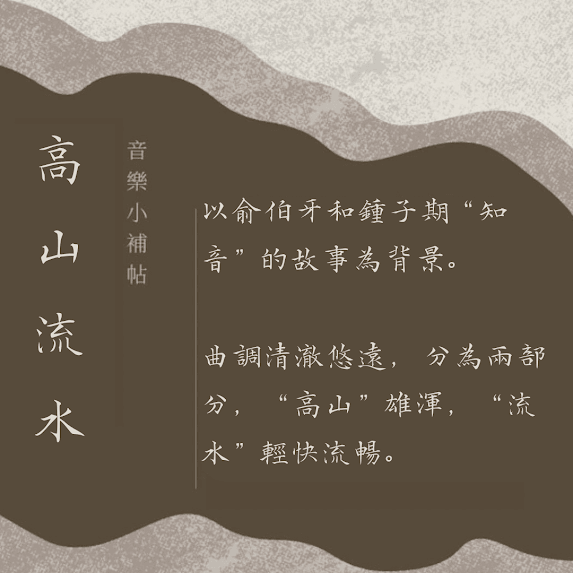 高山流水
音樂小補帖
以俞伯牙和鍾子期“知
音”的故事為背景。
曲調清澈悠遠，分為兩部
分，“高山”雄渾，“流
水”輕快流暢。